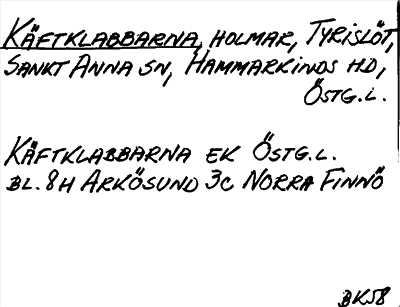 KÄFTKLABBARNA, HOLMAR, TYRISLÖT,
SANKT ANNA SN, HAMMARKINDS HD,
ÖSTG.L.
KÄFTKLABBARNA EK ÖSTG.L.
BL. 8H ARKÖSUND 3C NORRA FINNÖ
BK58